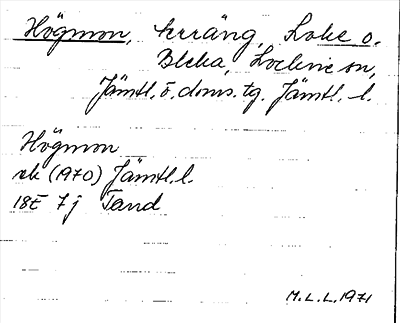 Högmon, terräng, Loke o.
Bleka, Lockne sn,
Jämtl. ö. doms. tg. Jämtl. l.
Högmon
ek (1970) Jämtl. l.
18E 7j Tand
M.L.L. 1971